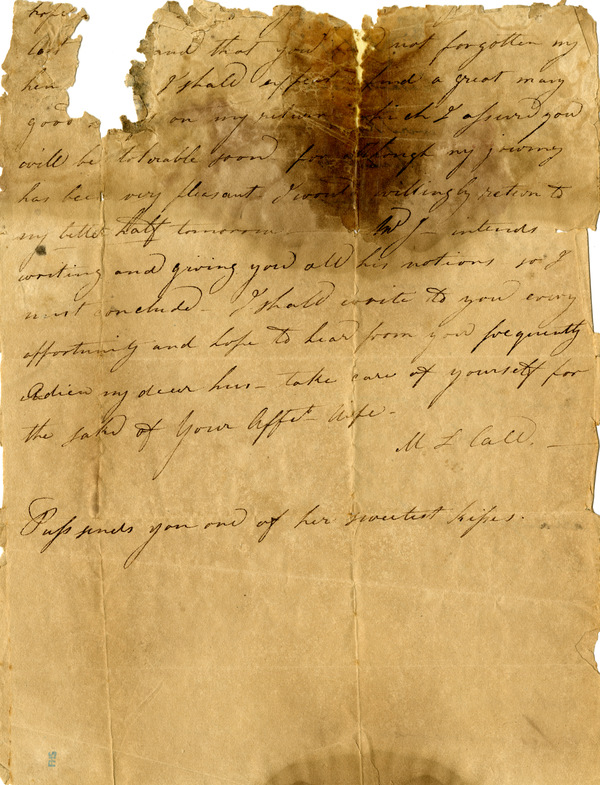 hope
and that you not forgotten my
hen I shall expect a great many
good on my return which I assure you
will be tolerable soon for although my journey
has been very pleasant I would willingly return to
my better half tomorrow intends
writing and giving you all his notions so I
must conclude - I shall write to you every
opportunity and hope to hear from you frequently
Adieu my dear hus - take care of yourself for
the sake of your Affect. Wife -
M L Call. -
Puss sends you one of her sweetest kisses.
FHS